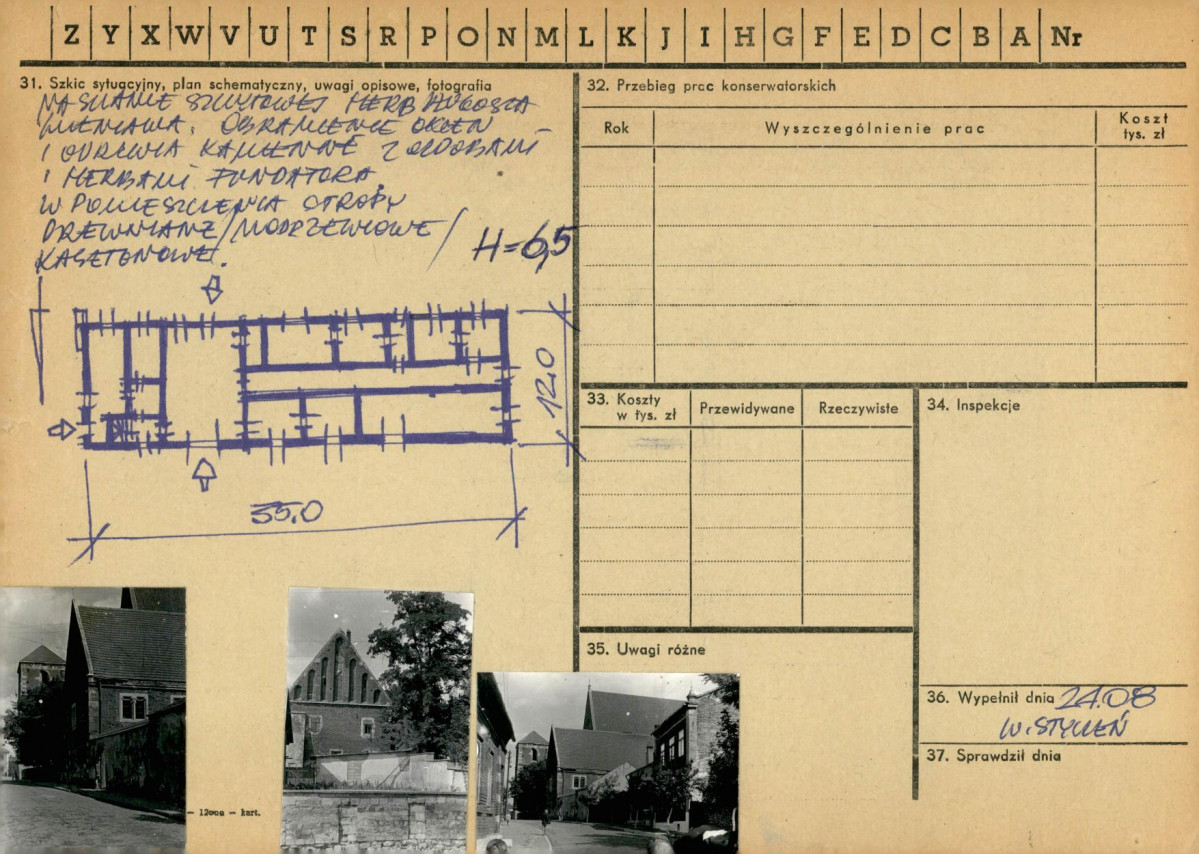 Z Y X W V U T S R P O N M L K J I H G F E D C B A Nr
31. Szkic sytuacyjny, plan schematyczny, uwagi opisowe, fotografia
NA ŚCIANIE SZCZYTOWEJ HERB DŁUGOSZA
WIENIAWA. OBRAMIENIE OKIEN
I ODRZWIA KAMIENNE Z OZDOBAMI
I HERBAMI FUNDATORA.
W POMIESZCZENIA STROPY
DREWNIANE /MODRZEWIOWE/
KASETONOWE.
H=6,5
12.0
35.0
- kart.
32. Przebieg prac konserwatorskich
Rok
Wyszczególnienie prac
Koszt
tys. zł
33. Koszty
w tys. zł
Przewidywane
Rzeczywiste
34. Inspekcje
35. Uwagi różne
36. Wypełnił dnia 24.08
W. STYCZEŃ
37. Sprawdził dnia